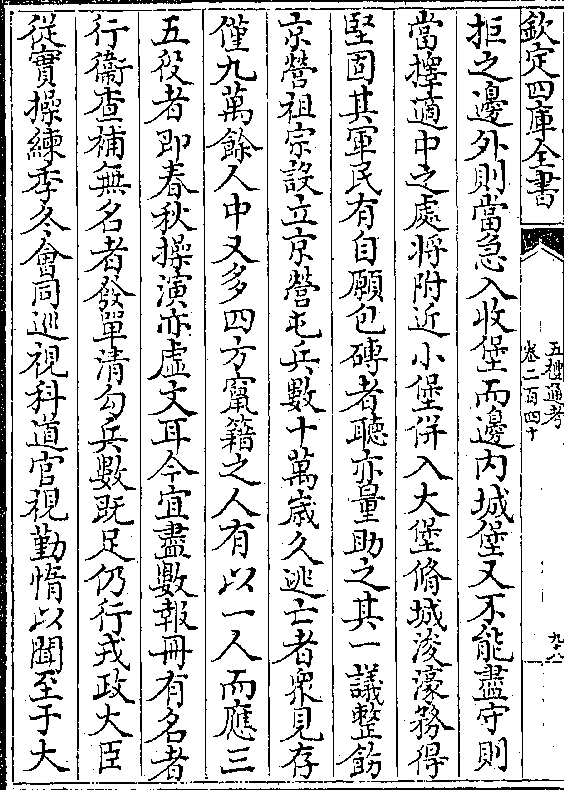 欽定四庫全書
五禮通考
卷二百四十
九十八
拒之邊外則當急入收堡而邊内城堡又不能盡守則
當擇適中之處將附近小堡併入大堡脩城浚濠務得
堅固其軍民有自願包磚者聽亦量助之其一議整飭
京營祖宗設立京營屯兵數十萬嵗久逃亡者衆見存
僅九萬餘人中又多四方竄籍之人有以一人而應三
五役者即春秋操演亦虚文耳今宜盡數報冊有名者
行衞查補無名者發單清勾兵數既足仍行戎政大臣
從實操練季久會同巡視科道官視勤惰以聞至于大